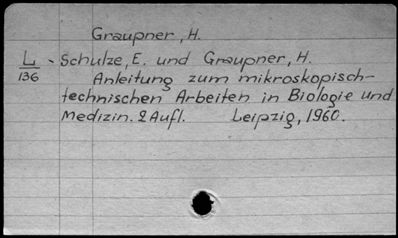 Graupner, H.
L
136 - Schulze, E. und Graupner, H.
Anleitung zum mikroskopisch-
technischen Arbeiten in Biologie und
Medizin. 2 Aufl. Leipzig, 1960.